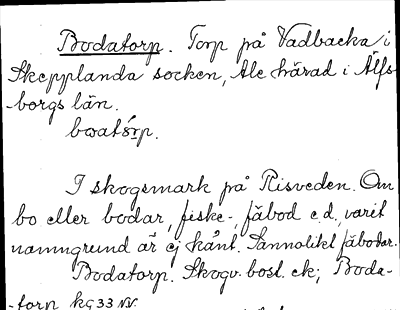 Bodatorp. Torp på Vadbacka i
Skepplanda socken, Ale härad i Älfs-
borgs län.
boatórp.
I skogsmark på Risveden. Om
bo eller bodar, fiske-, fäbod e.d., varit
namngrund är ej känt. Sannolikt fäbodar.
Bodatorp. Skogv. bost. ek; Boda-
-torp kg 33 NV.